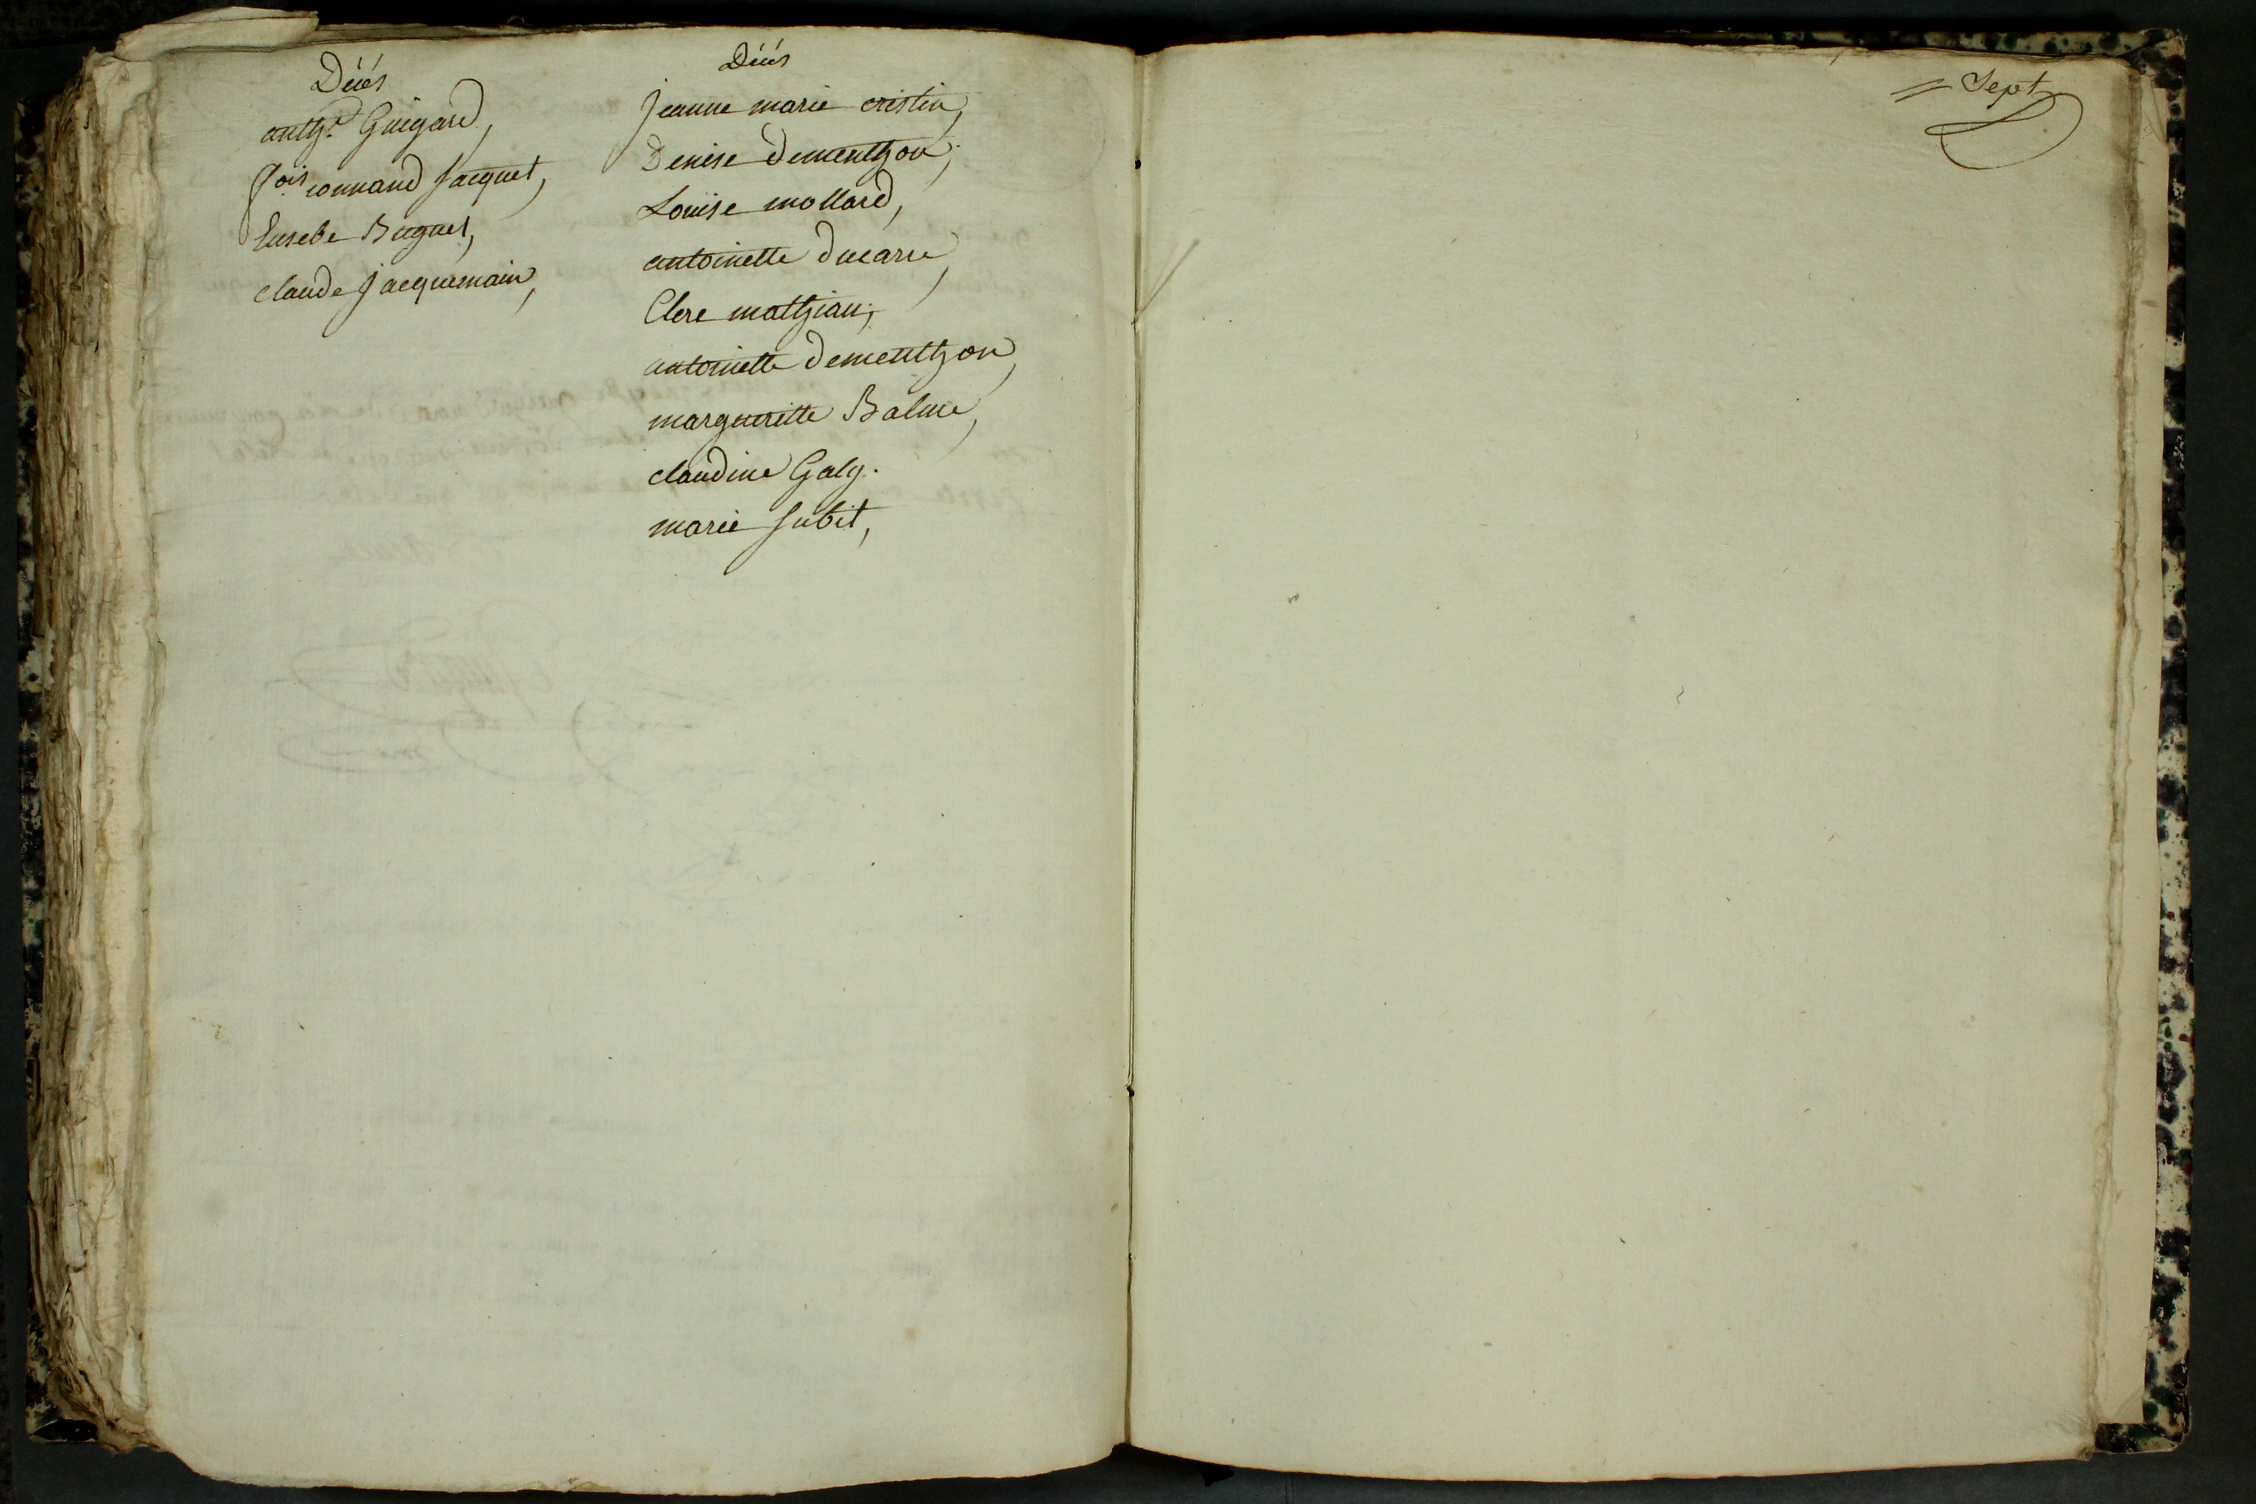 Décés
anth.e Guigard,
fois connand Jacquet,
Eusebe Buguet,
claude Jacquemain,
Décés
Jeanne marie cristin,
Denise dementhon,
Louise mollard,
antoinette ducarre,
Clere mathian,
antoinette dementhon,
margueritte Balme,
claudine Galy.
marie Subit,
= Sept